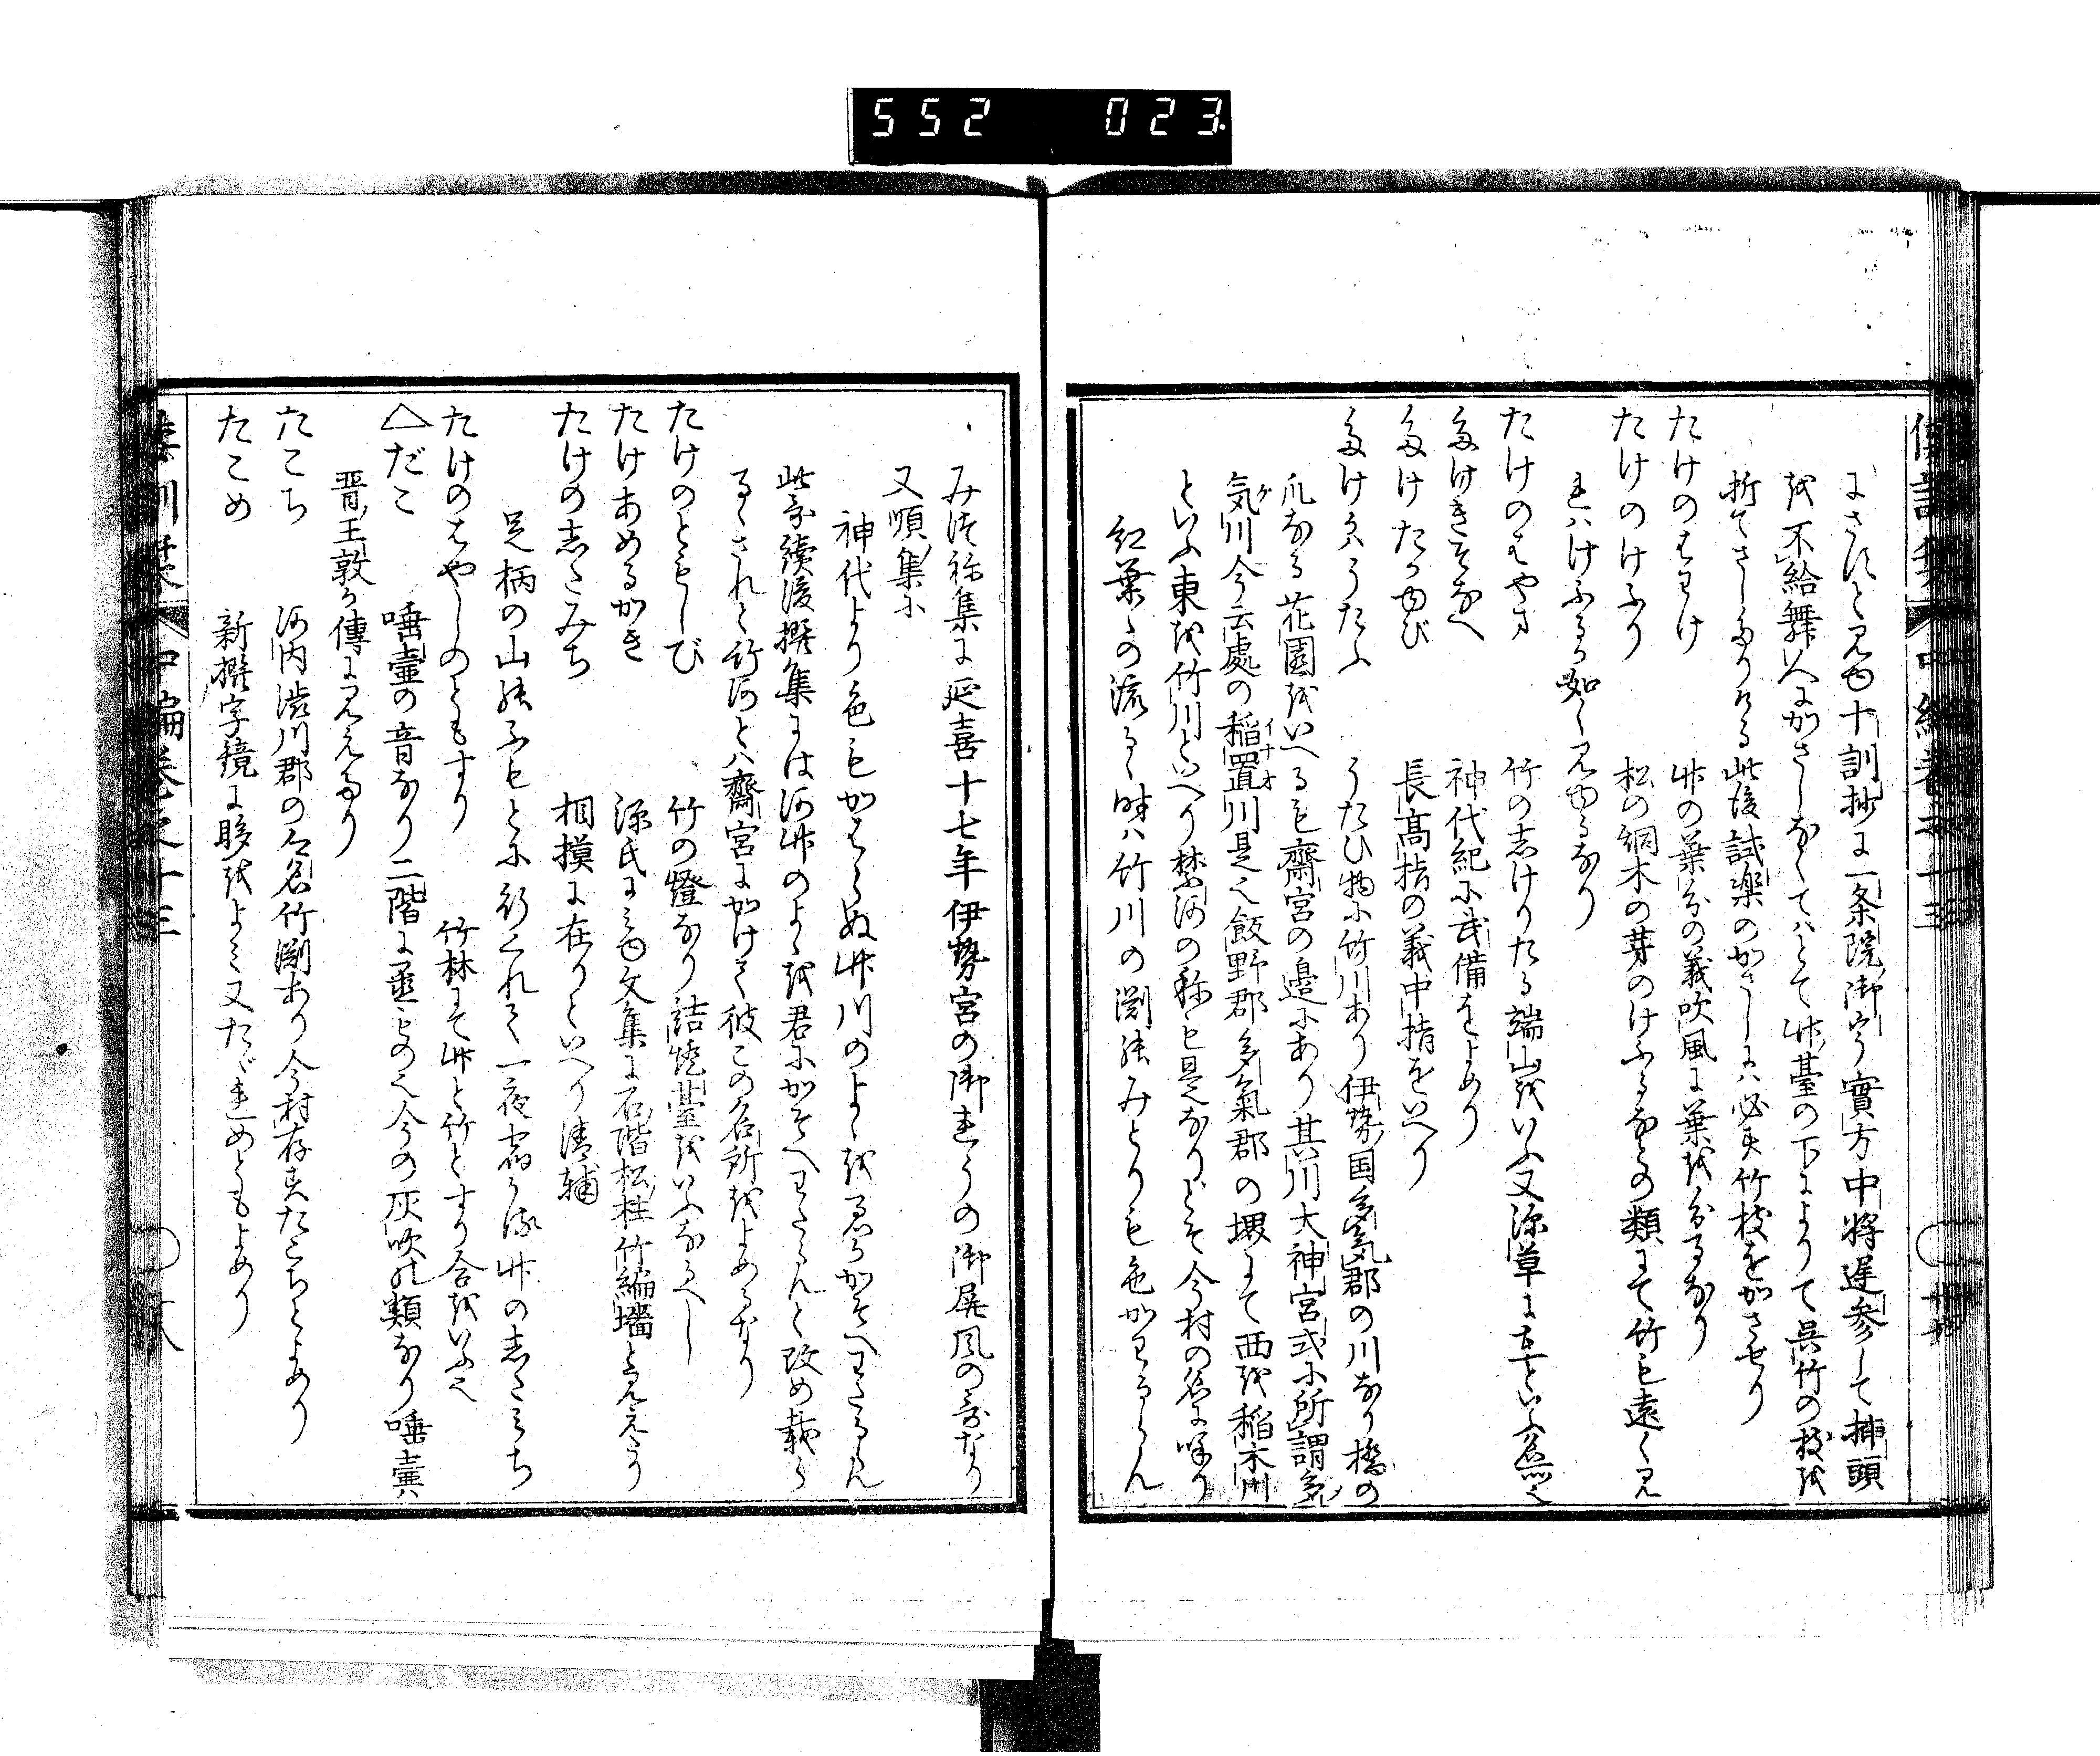 552 023
にさすと見ゆ十訓抄に一条院御時實方中将遅参して挿頭
を不給舞人にかさしなくてハとて竹臺の下によりて呉竹の枝を
折てさしたりける此後試楽のかさしにハ必す竹枝をかさせり
たけのはわけ 竹の葉分の義吹風に葉を分るなり
たけのけふり 松の烟木の芽のけふるなとの類にて竹も遠く見
れハけふるか如く見ゆるなり
たけのはやま 竹の志けりたる端山をいふ又深草に在といふ
たけきそなへ 神代紀に武備をよめり
たけたかゆび 長高指の義中指をいへり
たけかハうたふ うたひ物に竹川あり伊勢国多氣郡の川なり橋の
爪なる花園をいへるも齋宮の邉にあり其川大神宮式に所謂多
気川今云處の稲置川是也飯野郡多氣郡の堺にて西を稲木川
といふ東を竹川といへり禁河の称も是なりとそ今村の名に呼り
紅葉々の流るゝ時ハ竹川の渕のみとりも色かはるらん
みつね集に延喜十七年伊勢宮の御れうの御屏風の哥なり
又順集に
神代より色もかはらぬ竹川のよゝをゐかそへわたるらん
此哥續後撰集には河竹のよゝを君にかそへわたらんと改め載ら
るゝされと竹河とハ齋宮にかけて彼この名所をよめるなり
たけのともしび 竹の燈なり詰燒臺をいふなるへし
たけあめるかき 源氏にミゆ文集に石階松柱竹編墻と見えたり
たけの志たみち 相摸に在りといへり清輔
足柄の山のふもとに行くれて一夜宿かる竹の志たミち
たけのはやしのともすり 竹林にて竹と竹とすり合をいふ也
△だこ 唾壷の音なり二階に置もの也今の灰吹の類なり唾壷ハ
晋王敦か傳に見えたり
たこち 河内渋川郡の名竹渕あり今村存すたこちとよめり
たこめ 新撰字鏡に眵をよミ又たゞれめともよめり